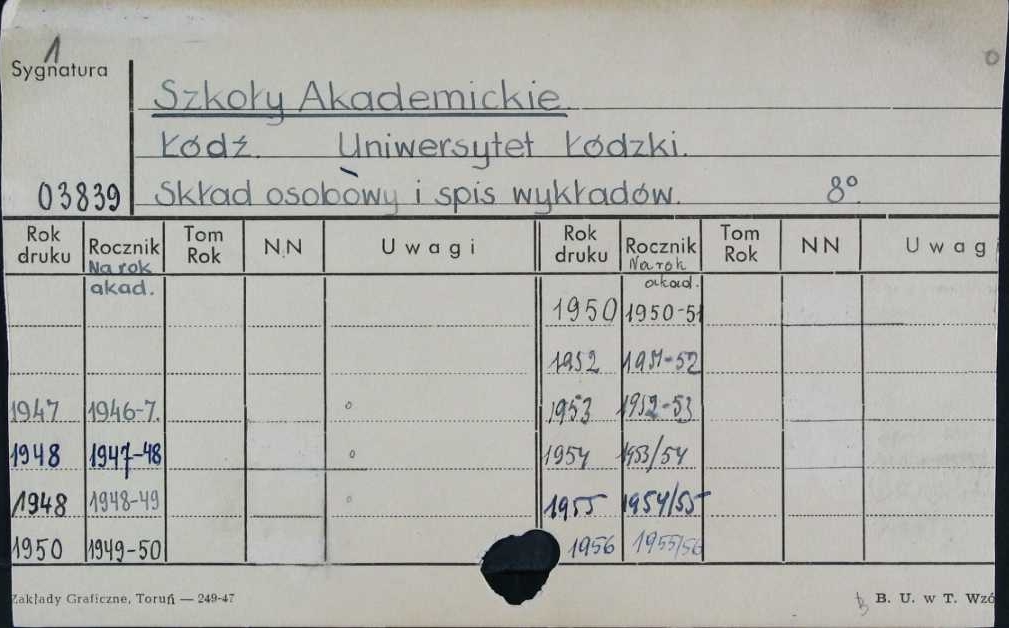 1
Sygnatura
Szkoły Akademickie.
Łódź. Uniwersytet Łódzki.
03839 Skład osobowy i spis wykładów. 8°.
Rok druku Rocznik Na rok akad. Tom Rok N.N Uwagi Rok druku Rocznik Na rok akad. Tom Rok NN Uwagi
1950 1950-51
1952 1951-52
1947 1946-7. 1953 1952-53
1948 1947-48 1954 1953/54
1948 1948-49 1955 1954/55
1950 1949-50 1956 1955/56
Zakłady Graficzne, Toruń — 249-47 B. U. w T. Wzó